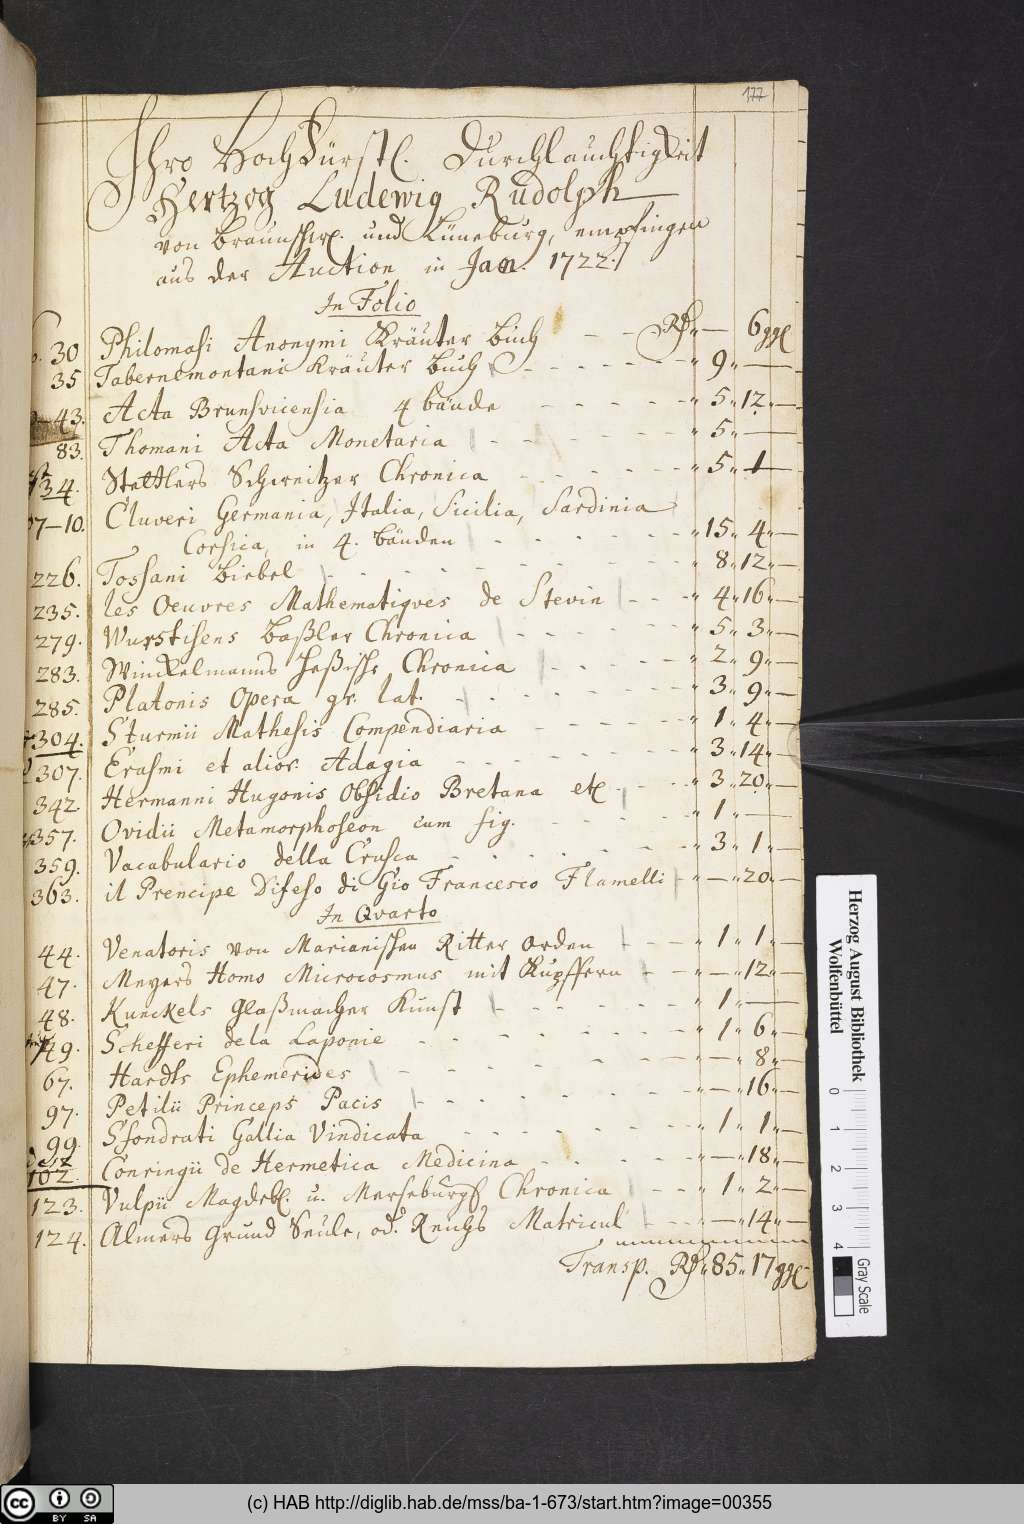 177
Ihro Hochfürstl. Durchlauchtigkeit
Hertzog Ludewig Rudolph
von Braunschw. und Lüneburg, empfingen
aus der Auction in Jan. 1722.
In Folio
30 Philomasi Anonymi Kräuter Buch — — Rthl „ — 6 ggl
35 Tabernemontani Kräuter Buch - - - - „ 9 „ —
43. Acta Brunsvicensia 4 bände - - - - „ 5 „ 12 „ —
83. Thomani Acta Monetaria - - - - „ 5 „ —
34. Stettlers Schweitzer Chronica - - - - „ 5 „ 1 —
7-10. Cluveri Germania, Italia, Sicilia, Sardinia
Corsica, in 4. bänden - - - - „ 15 „ 4 „ —
226. Tossani Biebel - - - - „ 8 „ 12 „ —
235. les Oeuvres Mathematiqves de Stevin - - - „ 4 „ 16 „ —
279. Wurstisens Baßler Chronica - - - - „ 5 „ 3 „ —
283. Winckelmanns Heßische Chronica - - - - „ 2 „ 9 „ —
285. Platonis Opera gr. lat. - - - - „ 3 „ 9 „ —
304. Sturmii Mathesis Compendiaria - - - - „ 1 „ 4 „ —
307. Erasmi et alior. Adagia - - - - „ 3 „ 14 „ —
342. Hermanni Hugonis Obsidio Bretana etc - - - „ 3 „ 20 „ —
357. Ovidii Metamorphoseon cum fig. - - - - „ 1 „ —
359. Vacabulario della Crusca - - - - „ 3 „ 1 „ —
363. il Prencipe Difeso di Gio Francesco Flamelli - „ — „ 20 „ —
In Qvarto
44. Venatoris von Marianischen Ritter Orden - - „ 1 „ 1 „ —
47. Meyers Homo Microcosmus mit Kupffern - - „ — „ 12 „ —
48. Kunckels Glaßmacher Kunst - - - - „ 1 „ —
49. Schefferi dela Laponie - - - - „ 1 „ 6 „ —
67. Hardts Ephemerides - - - - „ — „ 8 „ —
97. Petilii Princeps Pacis - - - - „ — „ 16 „ —
99. Sfondrati Gallia Vindicata - - - - „ 1 „ 1 „ —
102. Conringii de Hermetica Medicina - - - - „ — „ 18 „ —
123. Vulpii Magdeb. u. Merseburg Chronica - - „ 1 „ 2 „ —
124. Almers Grund Seule, od. Reichs Matricul - - „ — „ 14 „ —
Transp. Rthl „ 85 „ 17 ggl
Herzog August Bibliothek
Wolfenbüttel
0 1 2 3 4
Gray Scale
cc BY SA
(c) HAB http://diglib.hab.de/mss/ba-1-673/start.htm?image=00355